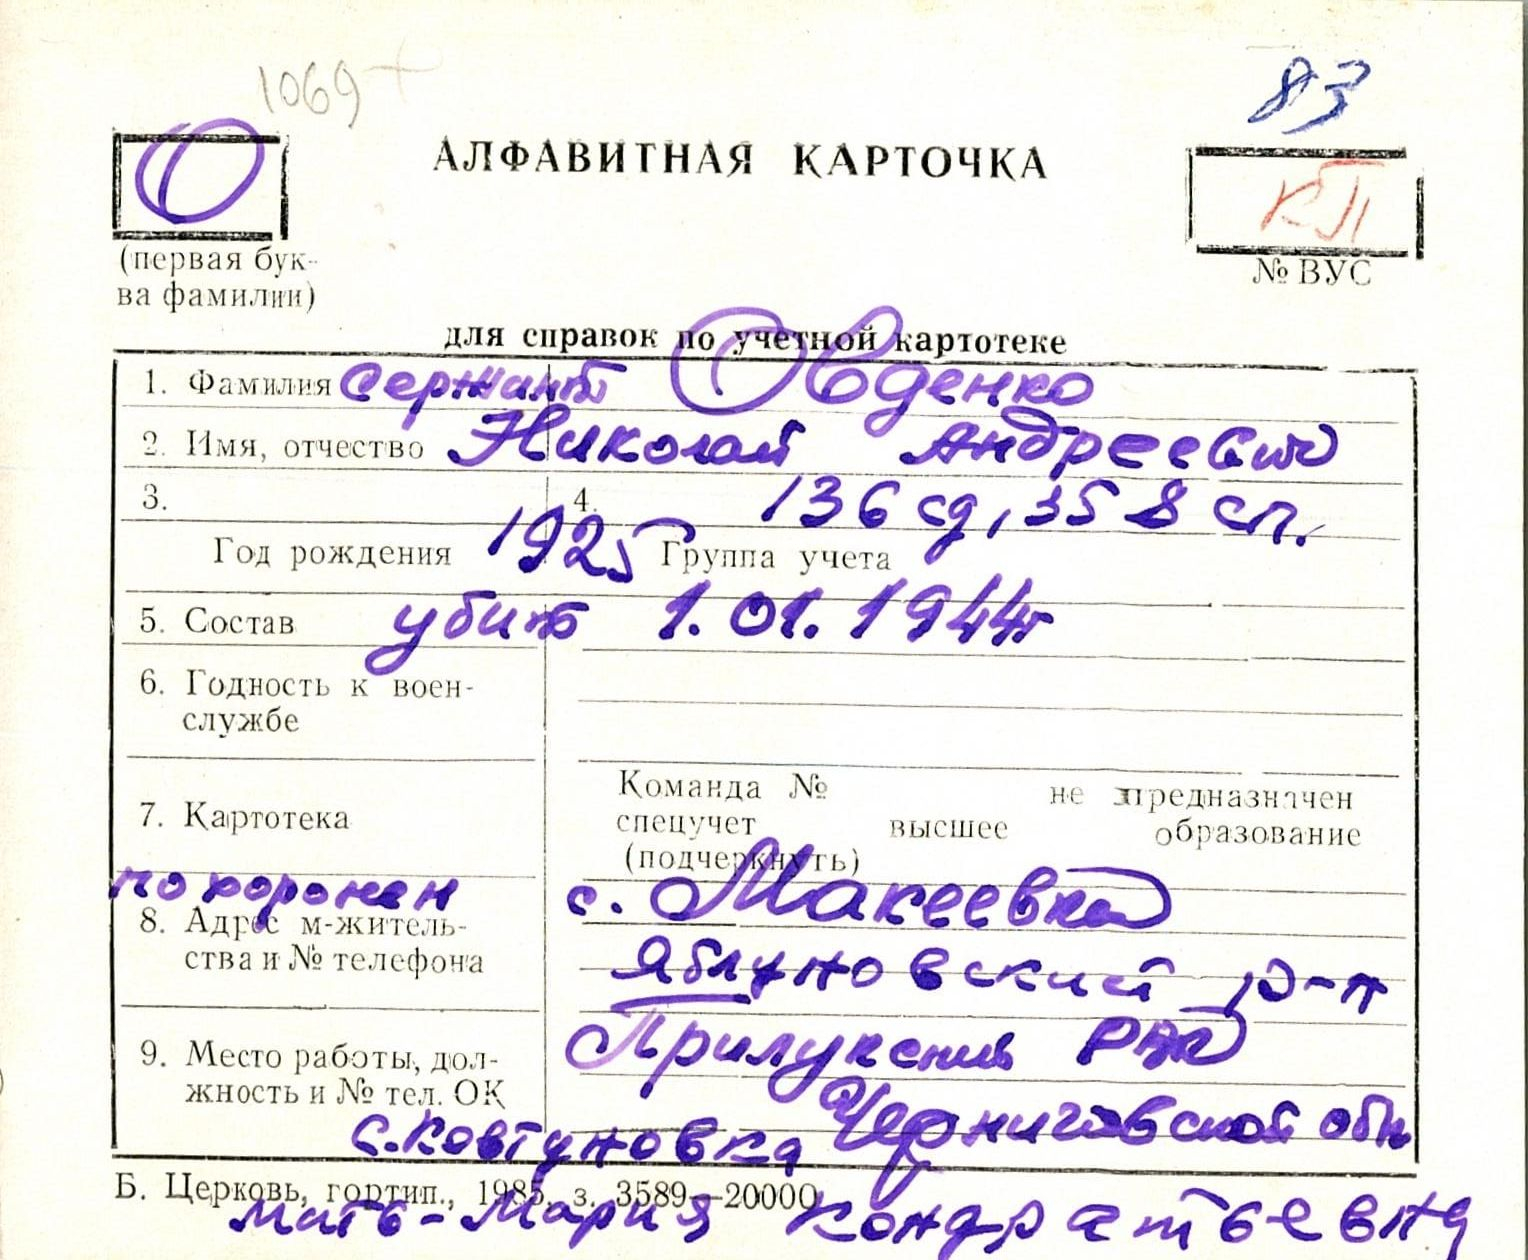 1069+
83
О
АЛФАВИТНАЯ КАРТОЧКА
КП
(первая бук-
ва фамилии)
№ ВУС
для справок по учетной картотеке
1. Фамилия сержант Овденко
2. Имя, отчество Николай Андреевич
3. 4. 136 сд, 358 сп.
Год рождения 1925 Группа учета
5. Состав убит 1.01.1944г
6. Годность к воен-
службе
7. Картотека
Команда № не предназначен
спецучет высшее образование
(подчеркнуть)
похоронен с. Макеевка
8. Адрес м-житель-
ства и № телефона
Яблуновский р-н
9. Место работы, дол-
жность и № тел. ОК
Прилукский РВК
Черниговской обл
с. Ковтуновка
Б. Церковь, гортип., 1985, з. 3589—20000
мать - Мария Кондратьевна